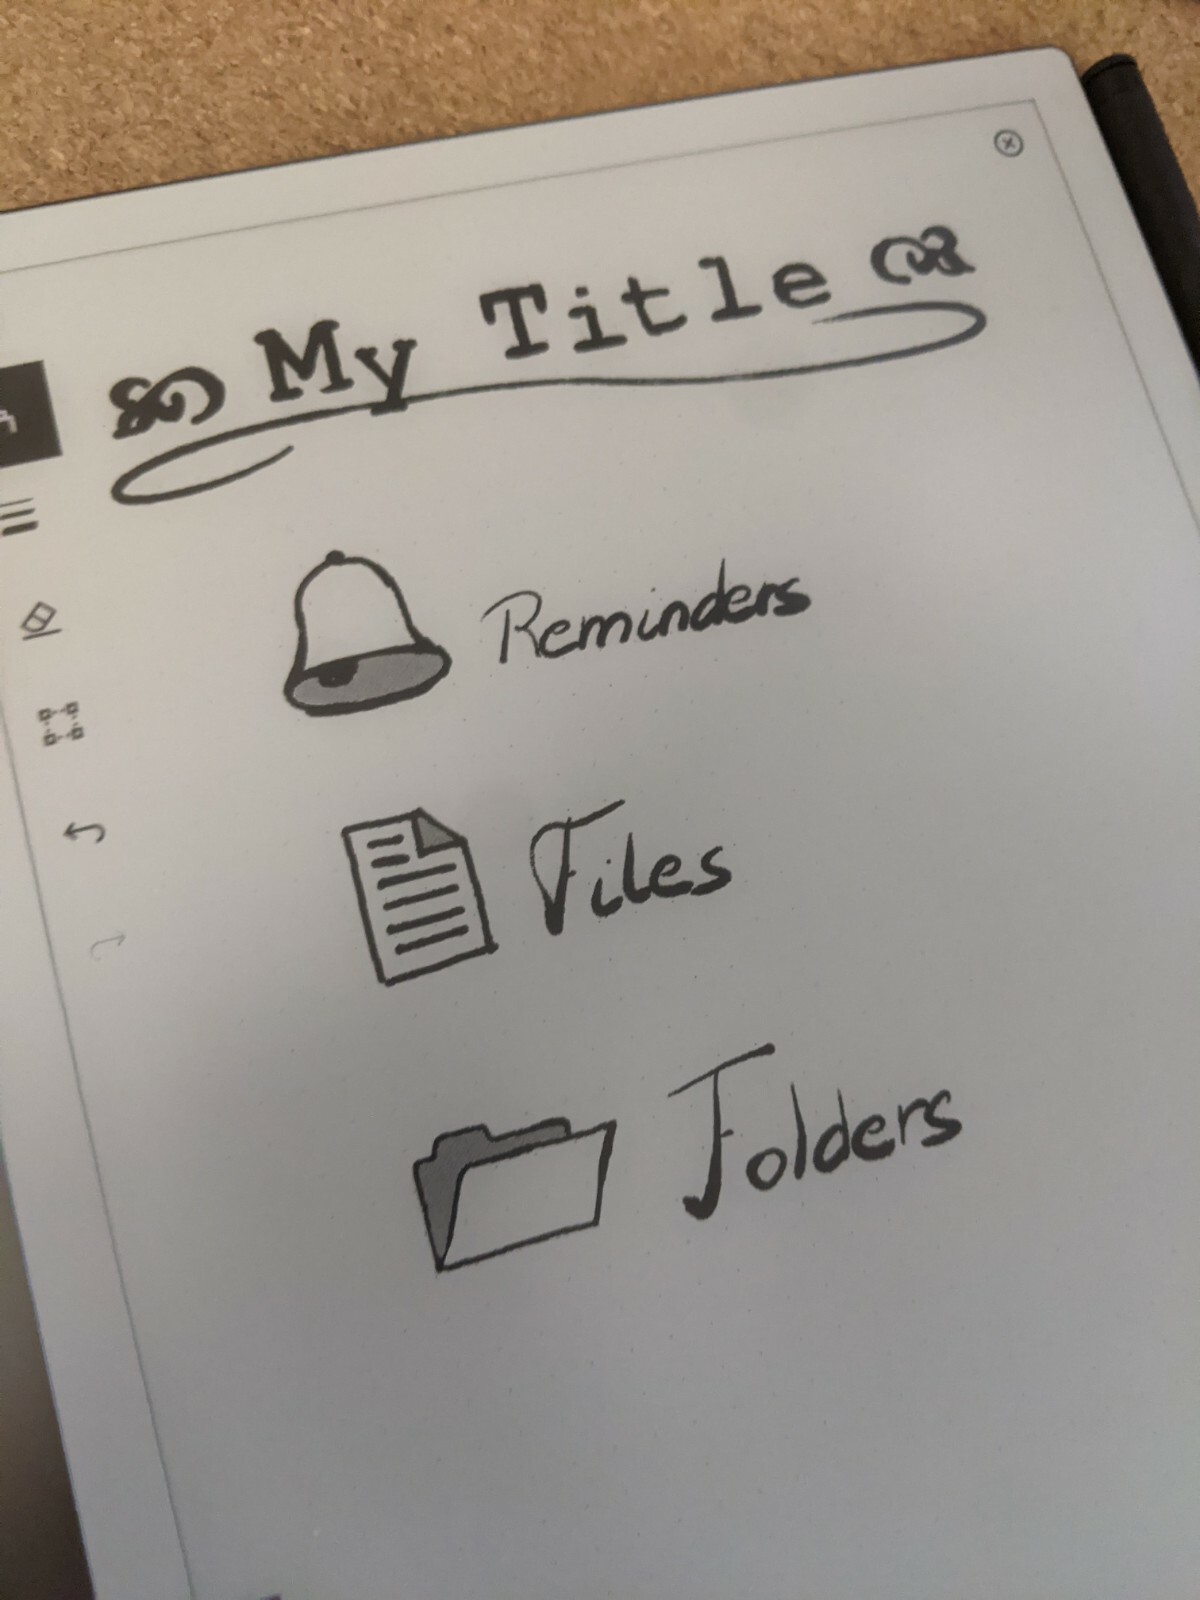 My Title
Reminders
Files
Folders